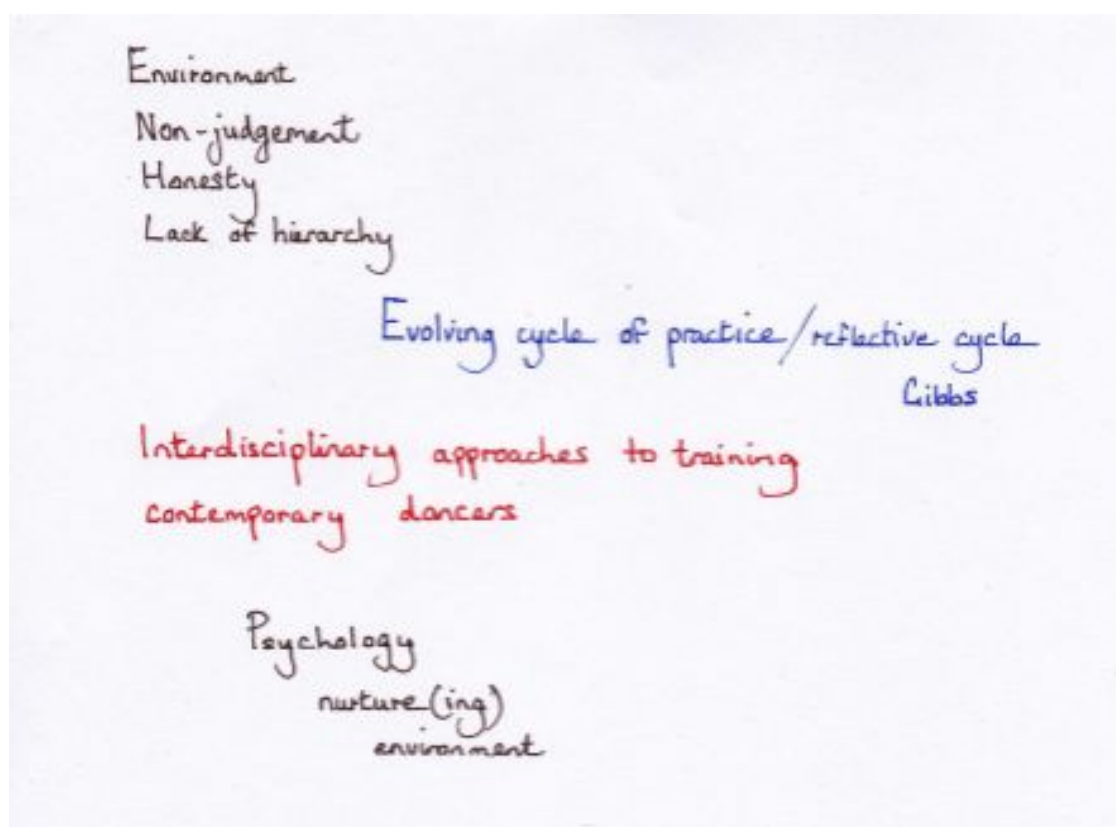 Environment
Non-judgement
Honesty
Lack of hierarchy
Evolving cycle of practice/reflective cycle
Gibbs
Interdisciplinary approaches to training
contemporary dancers
Psychology
nurture(ing)
environment